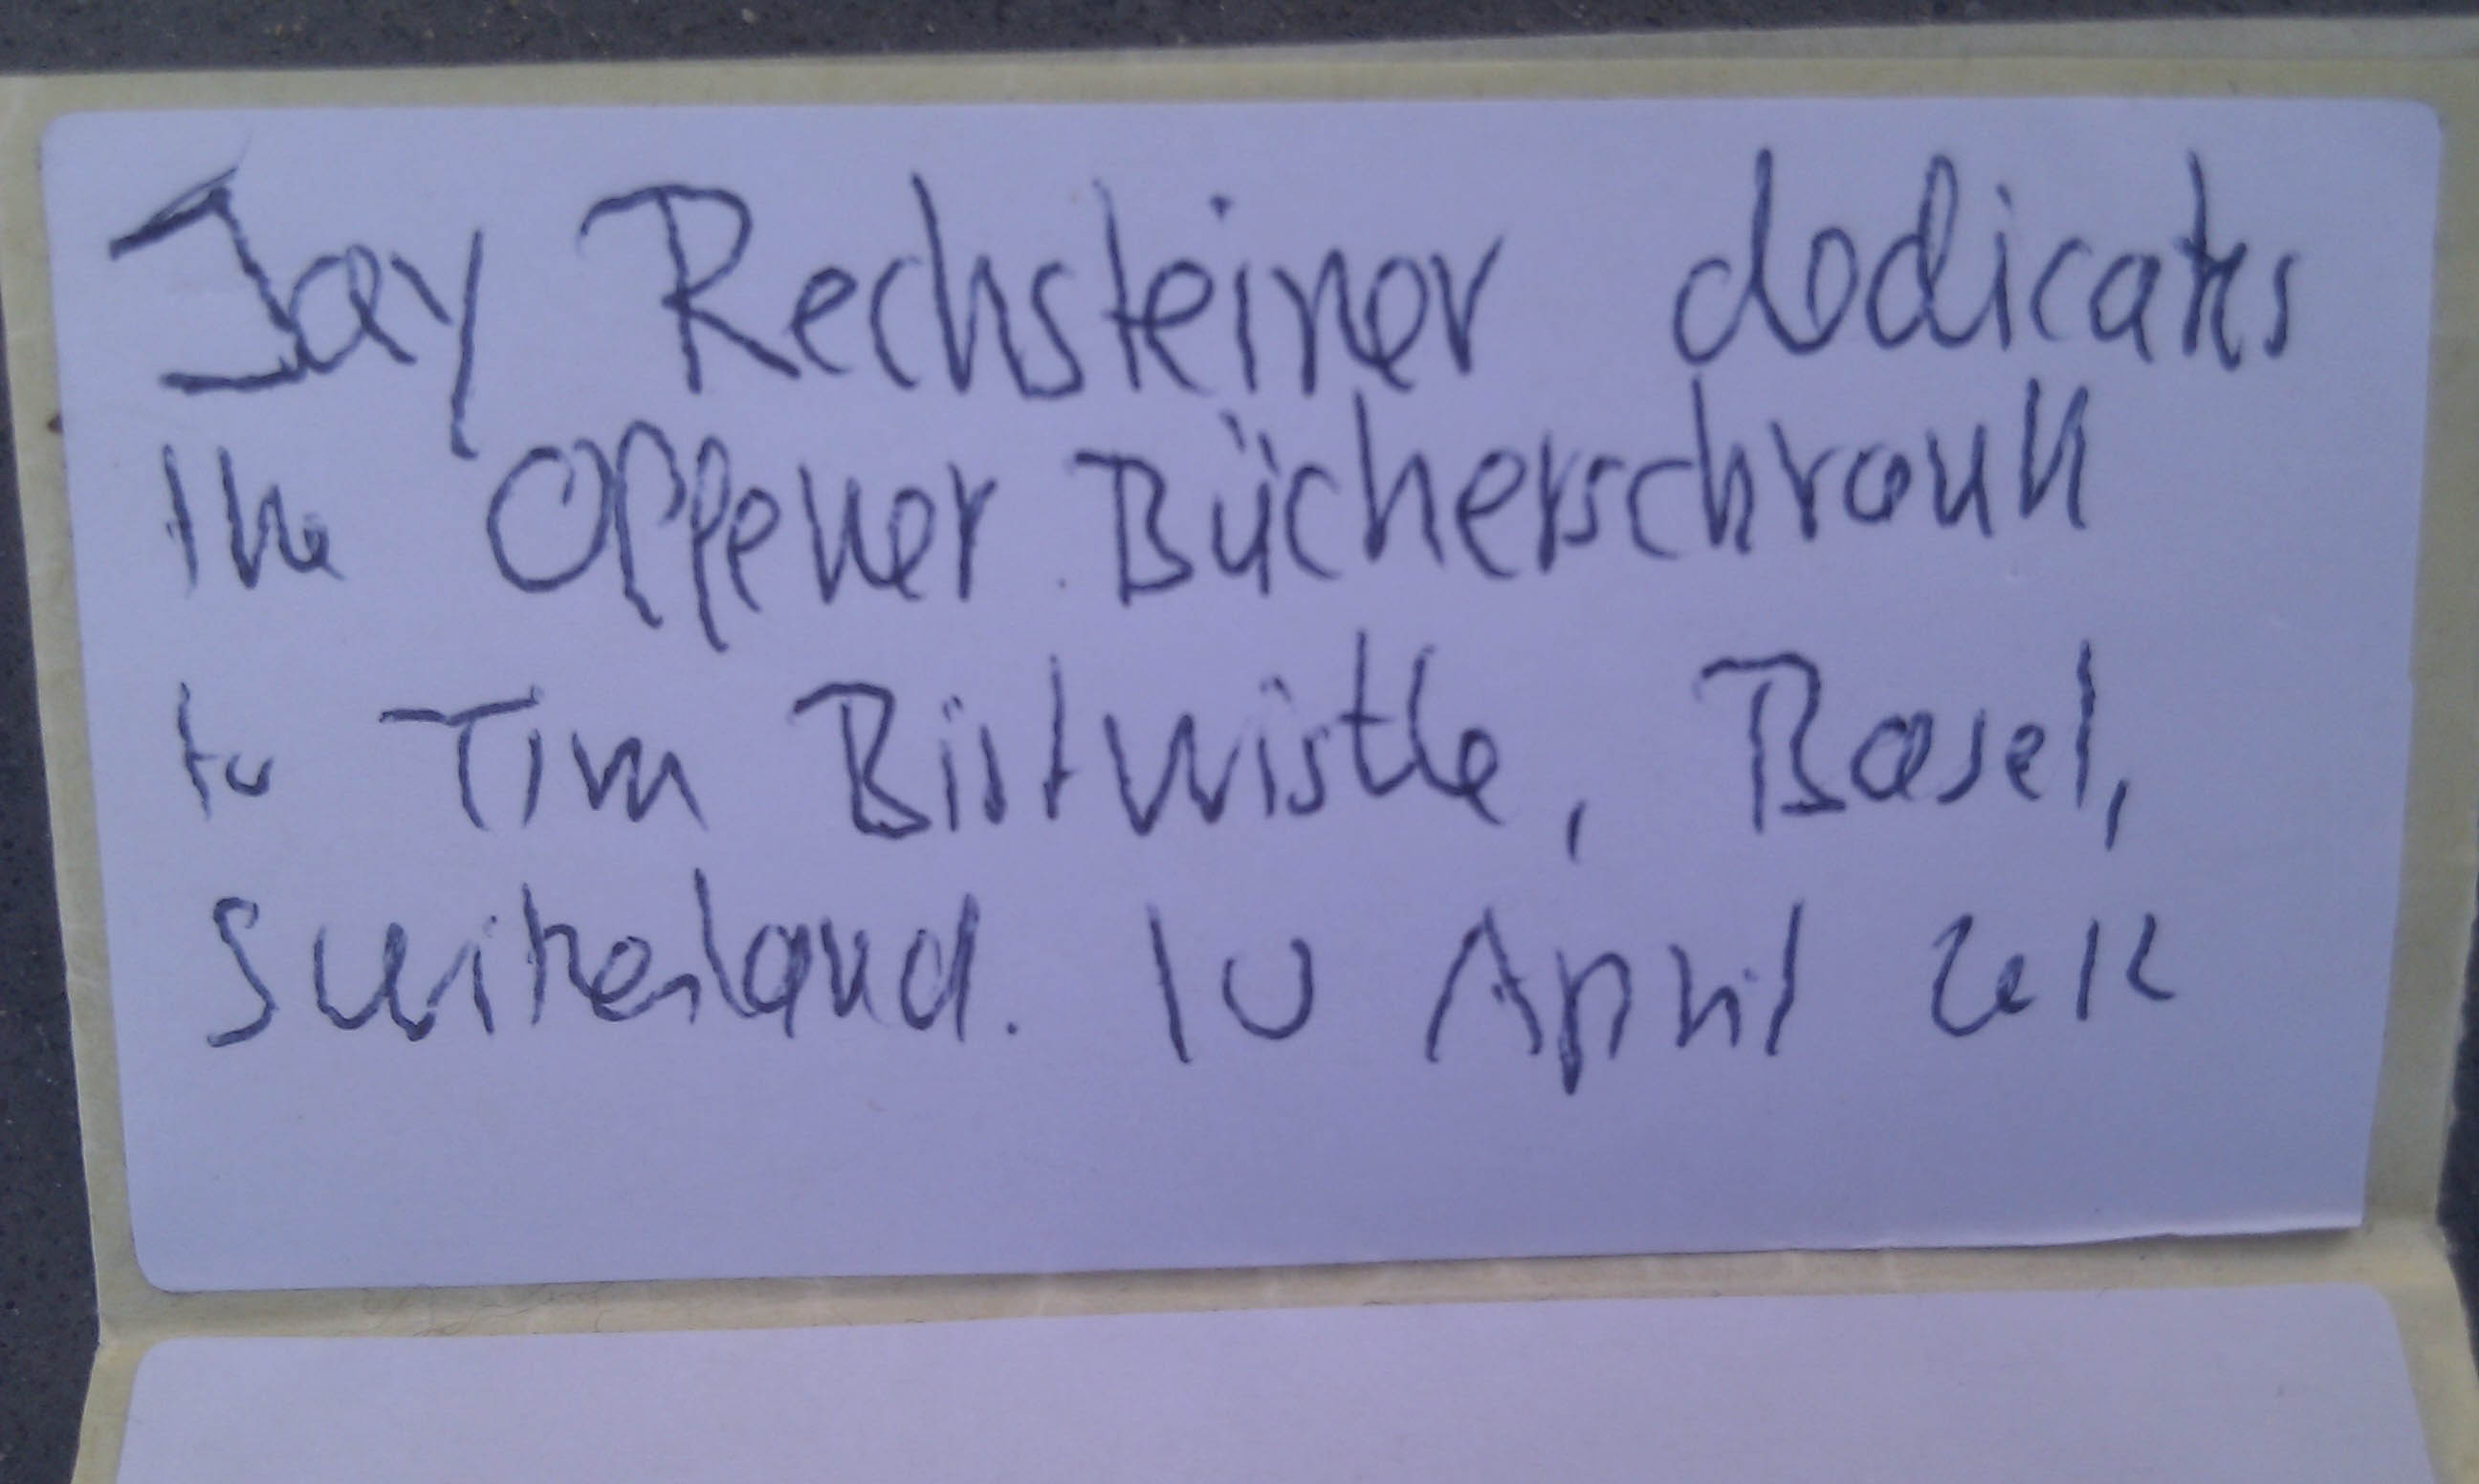 Jay Rechsteiner dedicates
the Offener Bücherschrank
to Tim Birtwistle, Basel,
Switzerland. 10 April 2012